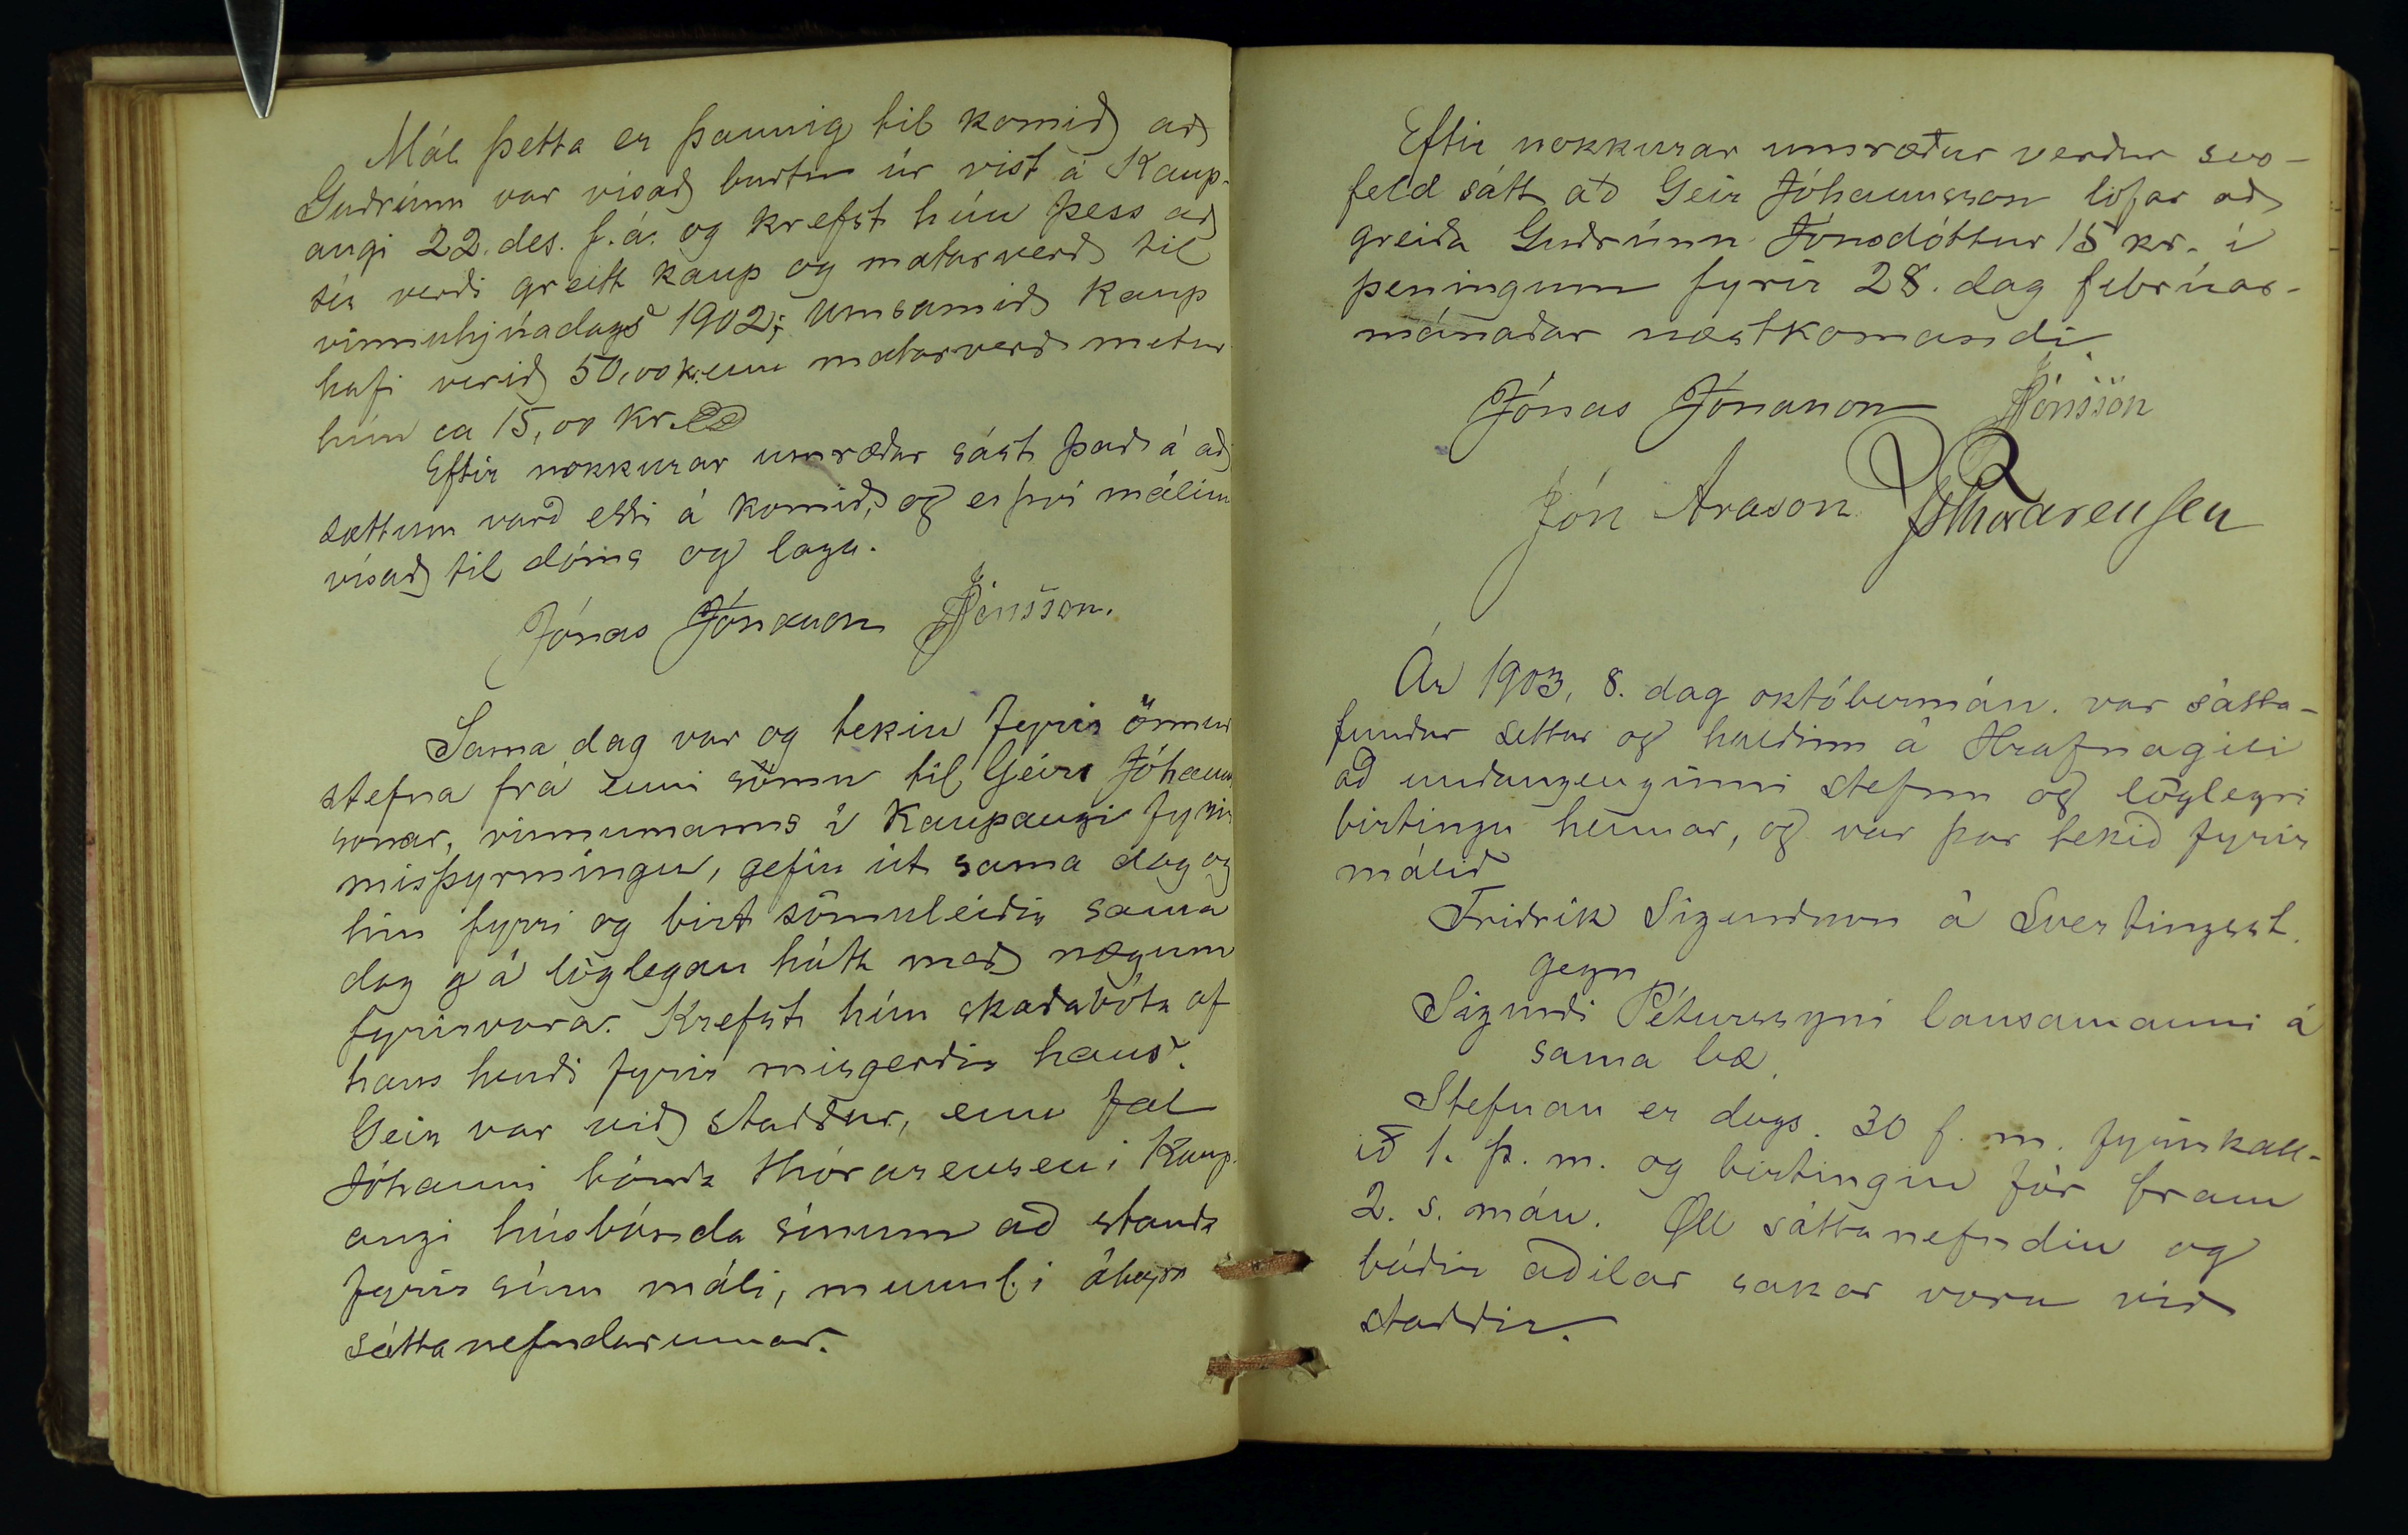 Mál þetta er þannig til komið að
Guðrúnu var vísað burtu úr vist á Kaup-
angi 22. des. f. á. og krefst hún þess að
sér verði greitt kaup og matarverð til
vinnuhjúadags 1902; Umsamið kaup
hafi verið 50,00 kr. enn matarverð metur
hún ca 15,00 kr.
Eftir nokkurar umræður sást það á að
sættum varð ekki á komið, og er því málinu
vísað til dóms og laga.
Jónas Jónasson JJónsson.
Sama dag var og tekin fyrir önnur
stefna frá enni sömu til Geirs Jóhanns
sonar, vinnumanns í Kaupangi fyrir
misþyrmingu, gefin út sama dag og
hin fyrri og birt sömuleiðis sama
dag og á löglegan hátt með nægum
fyrirvara. Krefst hún skaðabóta af
hans hendi fyrir misgerðir hans.
Geir var við staddur, enn fal
Jóhanni bónda Thórarensen í Kaup-
angi húsbónda sínum að standa
fyrir sínu máli, munnl. í áheyrn
sáttanefndarinnar.
Eftir nokkurar umræður verður svo-
feld sátt að Geir Jóhannsson lofar að
greiða Guðrúnu Jónsdóttur 15 kr. í
peningum fyrir 28. dag febrúar-
mánaðar næstkomandi
Jónas Jónasson JJónsson
Jón Arason JThorarensen
Ár 1903, 8. dag októbermán. var sátta-
fundur settur og haldinn á Hrafnagili
að undangenginni stefnu og löglegri
birtingu hennar, og var þar tekið fyrir
málið
Friðrik Sigurðsson á Svertingsst.
gegn
Sigurði Péturssyni lausamanni á
sama bæ.
Stefnan er dags. 30 f. m. fyrirkall-
ið 1. þ. m. og birtingin fór fram
2. s. mán. Öll sáttanefndin og
báðir aðilar sakar voru við
staddir.